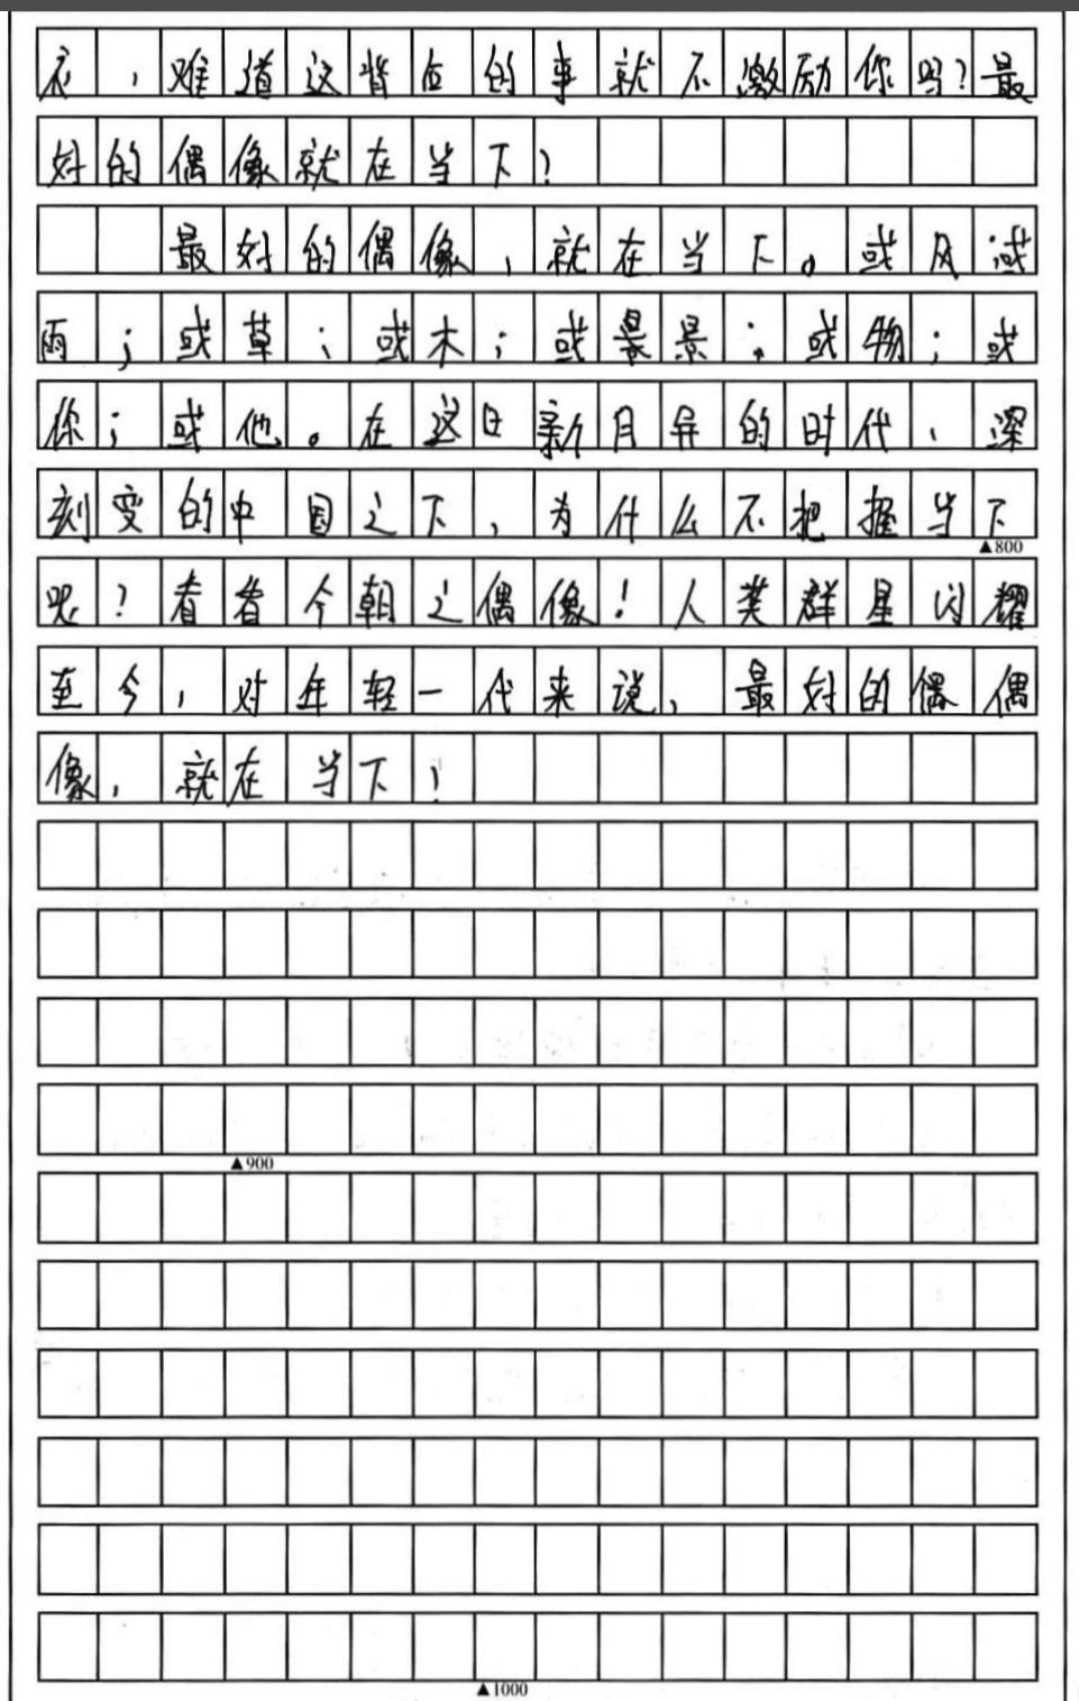 衣，难道这背后的事就不激励你吗？最
好的偶像就在当下？
最好的偶像，就在当下。或风或
雨；或草；或木；或晨景；或物；或
你；或他。在这日新月异的时代、深
刻变的中国之下，为什么不把握当下
▲800
呢？看看今朝之偶像！人类群星闪耀
至今，对年轻一代来说，最好的偶偶
像，就在当下！
▲900
▲1000